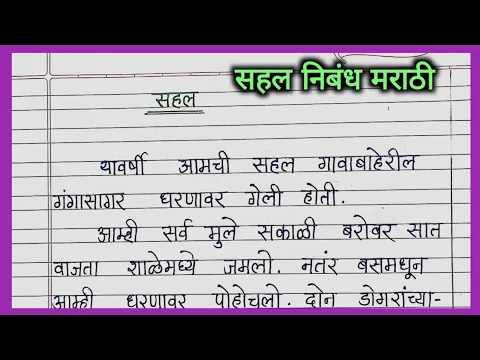 सहल निबंध मराठी
सहल
यावर्षी आमची सहल गावाबाहेरील
गंगासागर धरणावर गेली होती.
आम्ही सर्व मुले सकाळी बरोबर सात
वाजता शाळेमध्ये जमलो. नतंर बसमधून
आम्ही धरणावर पोहोचलो. दोन डोगरांच्या-